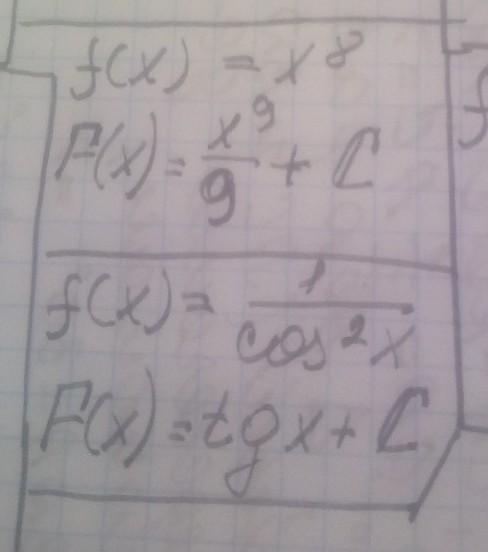 f(x) = x⁸
F(x) = x⁹/9 + C
f(x) = 1/cos²x
F(x) = tgx + C
f